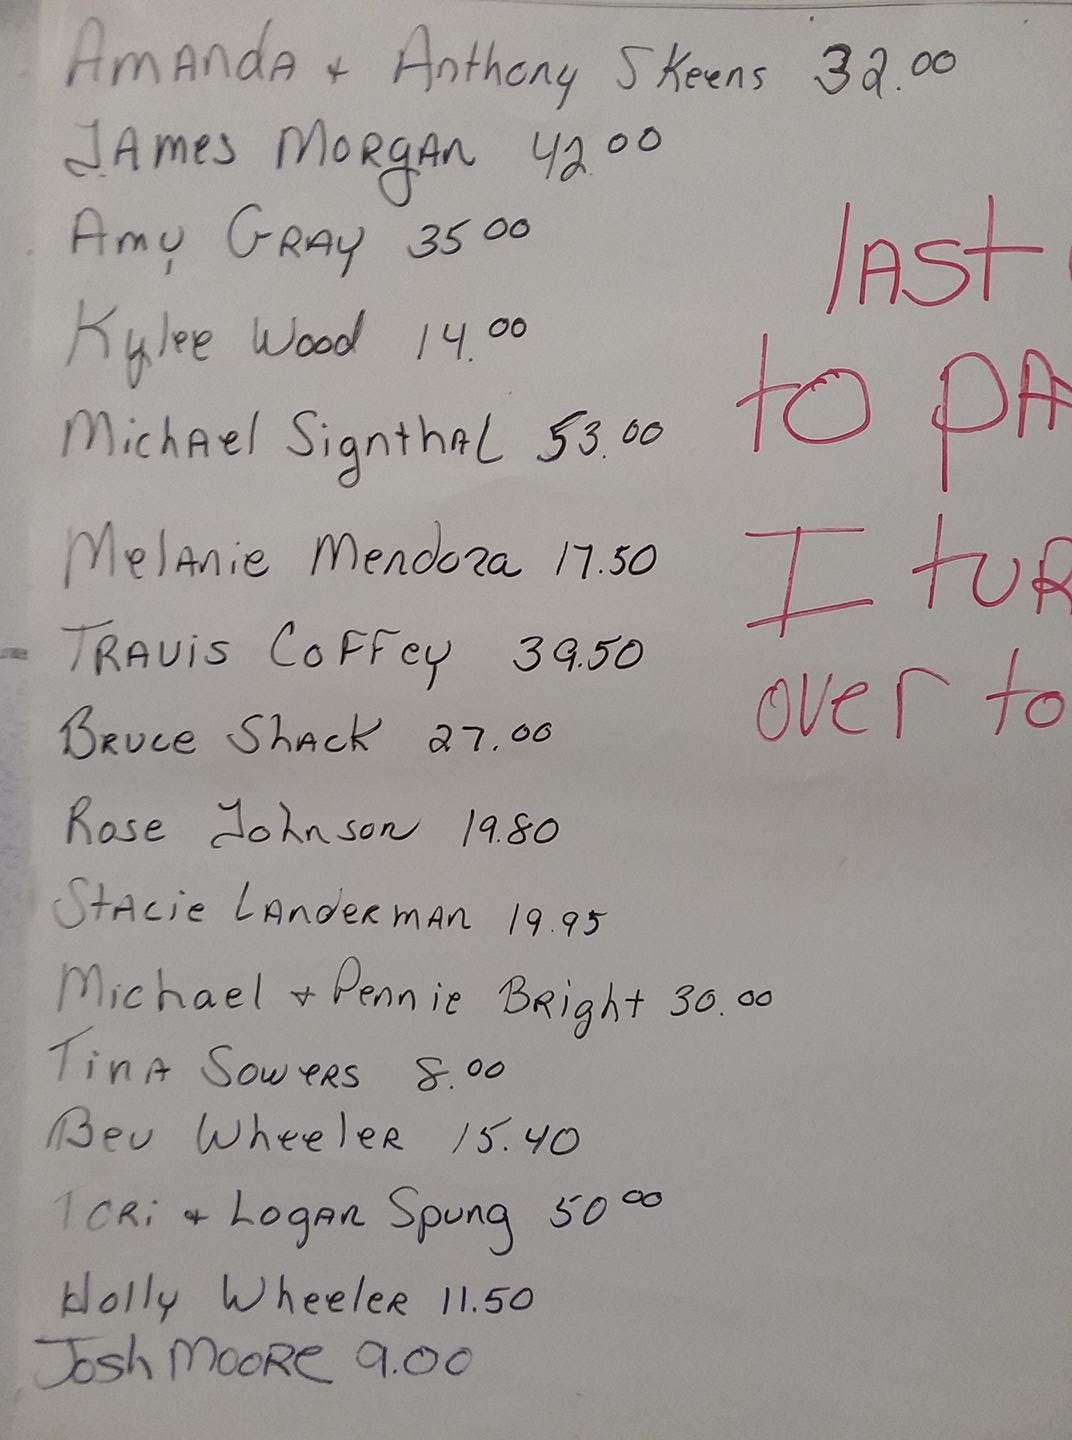 Amanda + Anthony Skeens 32.00
James Morgan 42.00
Amy Gray 35 00
Kylee Wood 14.00
Michael Signthal 53.00
Melanie Mendoza 17.50
Travis Coffey 39.50
Bruce Shack 27.00
Rose Johnson 19.80
Stacie Landerman 19.95
Michael + Pennie Bright 30.00
Tina Sowers 8.00
Bev Wheeler 15.40
Tori + Logan Spung 50 00
Holly Wheeler 11.50
Josh Moore 9.00
last
to pa
I tur
over to